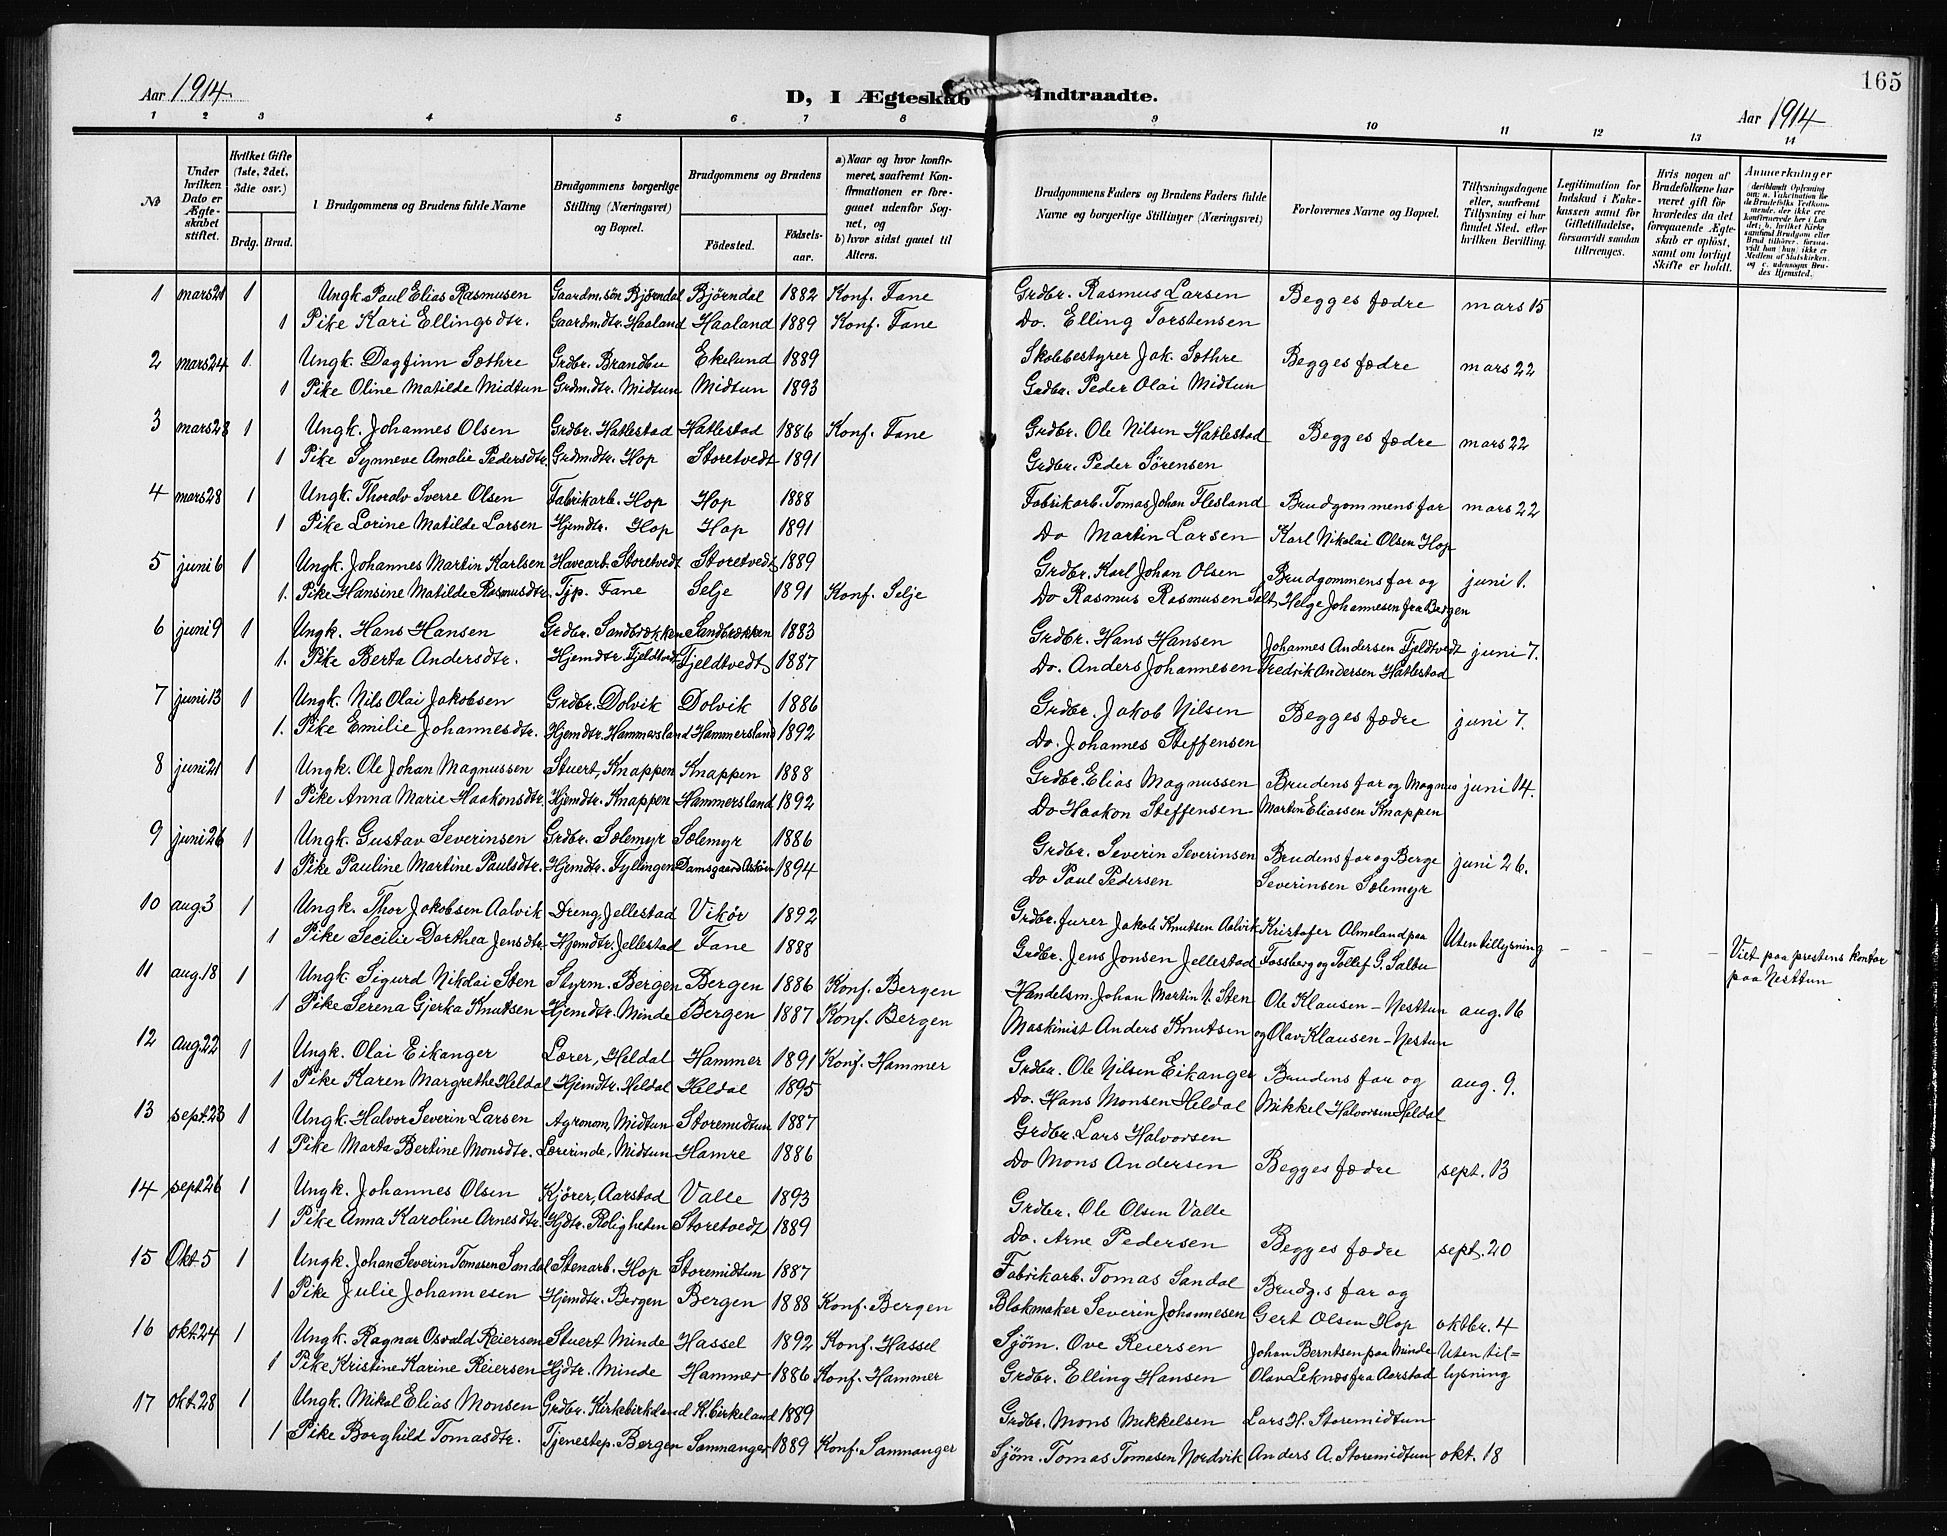 165
Aar 1914
D, I Ægteskab Indtraadte.
Aar 1914
1 2 3 4 5 6 7 8 9 10 11 12 13 14
No
Under hvilken Dato er Ægteskabet stiftet.
Hvilket Gifte (1ste, 2det, 3die osv.)
Brdg. Brud.
Brudgommens og Brudens fulde Navne
Brudgommens borgerlige Stilling (Næringsvei) og Bopæl.
Brudgommens og Brudens
Fødested. Fødselsaar.
a) Naar og hvor konfirmeret, saafremt Konfirmationen er foregaaet udenfor Sognet, og
b) hvor sidst gaaet til Alters.
Brudgommens Faders og Brudens Faders fulde Navne og borgerlige Stillinger (Næringsvei)
Forlovernes Navne og Bopæl.
Tillysningsdagene eller, saafremt Tillysning ei har fundet Sted. efter hvilken Bevilling.
Legitimation for Indskud i Enkekassen samt for Giftetilladelse, forsaavidt saadan tiltrænges.
Hvis nogen af Brudefolkene har været gift før hvorledes da det foregaaende Ægteskab er opløst, samt om lovligt Skifte er holdt.
Anmærkninger
1 mars 21 1 Ungk. Paul Elias Rasmusen Gaardm.sön Bjørndal Bjørndal 1882 Konf. Fane Grdbr. Rasmus Larsen Begges fædre mars 15
1 Pike Kari Ellingsdtr. Gaardmdtr. Haaland Haaland 1889 Konf. Fane Do. Elling Torstensen
2 mars 24 1 Ungk. Dagfinn Sæthre Grdbr. Brandbu Ekelund 1889 Skolebestyrer Jak. Sæthre Begges fædre mars 22
1 Pike Oline Matilde Midtun Grdmdtr. Midtun Midtun 1893 Grdbr. Peder Olai Midtun
3 mars 28 1 Ungk. Johannes Olsen Grdbr. Hatlestad Hatlestad 1886 Konf. Fane Grdbr. Ole Nilsen Hatlestad Begges fædre mars 22
1 Pike Synneve Amalie Pedersdtr. Grdmdtr. Hop Storetvedt 1891 Grdbr. Peder Sørensen
4 mars 28 1 Ungk. Thoralv Sverre Olsen Fabrikarb. Hop Hop 1888 Fabrikarb. Tomas Johan Flesland Brudgommens far mars 22
1 Pike Lorine Matilde Larsen Hjemdtr. Hop Hop 1891 Do Martin Larsen Karl Nikolai Olsen Hop
5 juni 6 1 Ungk. Johannes Martin Karlsen Havearb. Storetvedt Storetvedt 1889 Grdbr. Karl Johan Olsen Brudgommens far og juni 1.
1. Pike Hansine Matilde Rasmusdtr. Tjp. Fane Selje 1891 Konf. Selje Do Rasmus Rasmusen Salt Helge Johannesen fra Bergen
6 juni 9 1 Ungk. Hans Hansen Grdbr. Sandbrækken Sandbrækken 1883 Grdbr. Hans Hansen Johannes Andersen Fjeldtvedt juni 7.
1. Pike Berta Andersdtr. Hjemdtr. Fjeldtvedt Fjeldtvedt 1887 Do. Anders Johannesen Fredrik Andersen Hatlestad
7 juni 13 1 Ungk. Nils Olai Jakobsen Grdbr. Dolvik Dolvik 1886 Grdbr. Jakob Nilsen Begges fædre juni 7.
1. Pike Emilie Johannesdtr. Hjemdtr. Hammersland Hammersland 1892 Do. Johannes Steffensen
8 juni 21 1 Ungk. Ole Johan Magnussen Stuert, Knappen Knappen 1888 Grdbr. Elias Magnussen Brudens far og Magnus juni 14.
1 Pike Anna Marie Haakonsdtr. Hjemdtr. Knappen Hammersland 1892 Do Haakon Steffensen Martin Eliassen Knappen
9 juni 26 1 Ungk. Gustav Severinsen Grdbr. Sælemyr Sælemyr 1886 Grdbr. Severin Severinsen Brudens far og Berge juni 26.
1 Pike Pauline Martine Paulsdtr. Hjemdtr. Fyllingen Damsgaard Askøen 1894 Do Paul Pedersen Severinsen Sælemyr
10 aug. 3 1 Ungk. Thor Jakobsen Aalvik Dreng, Jellestad Vikør 1892 Grdbr. furer Jakob Knutsen Aalvik Kristofer Olmeland paa Uten tillysning - - - Viet paa prestens kontor
1 Pike Secilie Dorthea Jensdtr. Hjemdtr. Jellestad Fane 1888 Grdbr. Jens Jonsen Jellestad Fossberg og Tollef G. Salbu paa Nesttun
11 aug. 18 1 Ungk. Sigurd Nikolai Sten Styrm. Bergen Bergen 1886 Konf. Bergen Handelsm. Johan Martin N. Sten Ole Klausen - Nesttun aug. 16
1 Pike Serena Gjerka Knutsen Hjemdtr. Minde Bergen 1887 Konf. Bergen Maskinist Anders Knutsen og Olav Klausen - Nestun
12 aug. 22 1 Ungk. Olai Eikanger Lærer, Heldal Hammer 1891 Konf. Hammer Grdbr. Ole Nilsen Eikanger Brudens far og aug. 9.
1 Pike Karen Margrethe Heldal Hjemdtr. Heldal Heldal 1895 Do. Hans Monsen Heldal Mikkel Halvorsen Heldal
13 sept. 23 1 Ungk. Halvor Severin Larsen Agronom, Midtun Storemidtun 1887 Grdbr. Lars Halvorsen
1 Pike Marta Bertine Monsdtr. Lærerinde, Midtun Hamre 1886 Do Mons Andersen Begges fædre sept. 13
14 sept 26 1 Ungk. Johannes Olsen Kjører, Aarstad Valle 1893 Grdbr. Ole Olsen Valle
1 Pike Anna Karoline Arnesdtr. Hjdtr. Roligheten Storetvedt 1889 Do. Arne Pedersen Begges fædre sept. 20
15 Okt. 5 1 Ungk. Johan Severin Tomasen Sandal Stenarb. Hop Storemidtun 1887 Fabrikarb. Tomas Sandal Brudg.s far og
1 Pike Julie Johannesen Hjemdtr. Bergen Bergen 1888 Konf. Bergen Blokmaker Severin Johannesen Gert Olsen Hop oktbr. 4
16 okt. 24 1 Ungk. Ragnar Osvald Reiersen Stuert Minde Hassel 1892 Konf. Hassel Sjøm. Ove Reiersen Johan Berntsen paa Minde Uten til=
1 Pike Kristine Karine Reiersen Hjdtr. Minde Hammer 1886 Konf. Hammer Grdbr. Elling Hansen Olav Leknæs fra Aarstad lysning
17 okt. 28 1 Ungk. Mikal Elias Monsen Grdbr. Kirkbirkeland K. birkeland 1889 Grdbr. Mons Mikkelsen Lars H. Storemidtun
1 Pike Borghild Tomasdtr. Tjenestep. Bergen Samnanger 1889 Konf. Samnanger Sjøm. Tomas Tomasen Nordvik Anders A. Storemidtun okt. 18